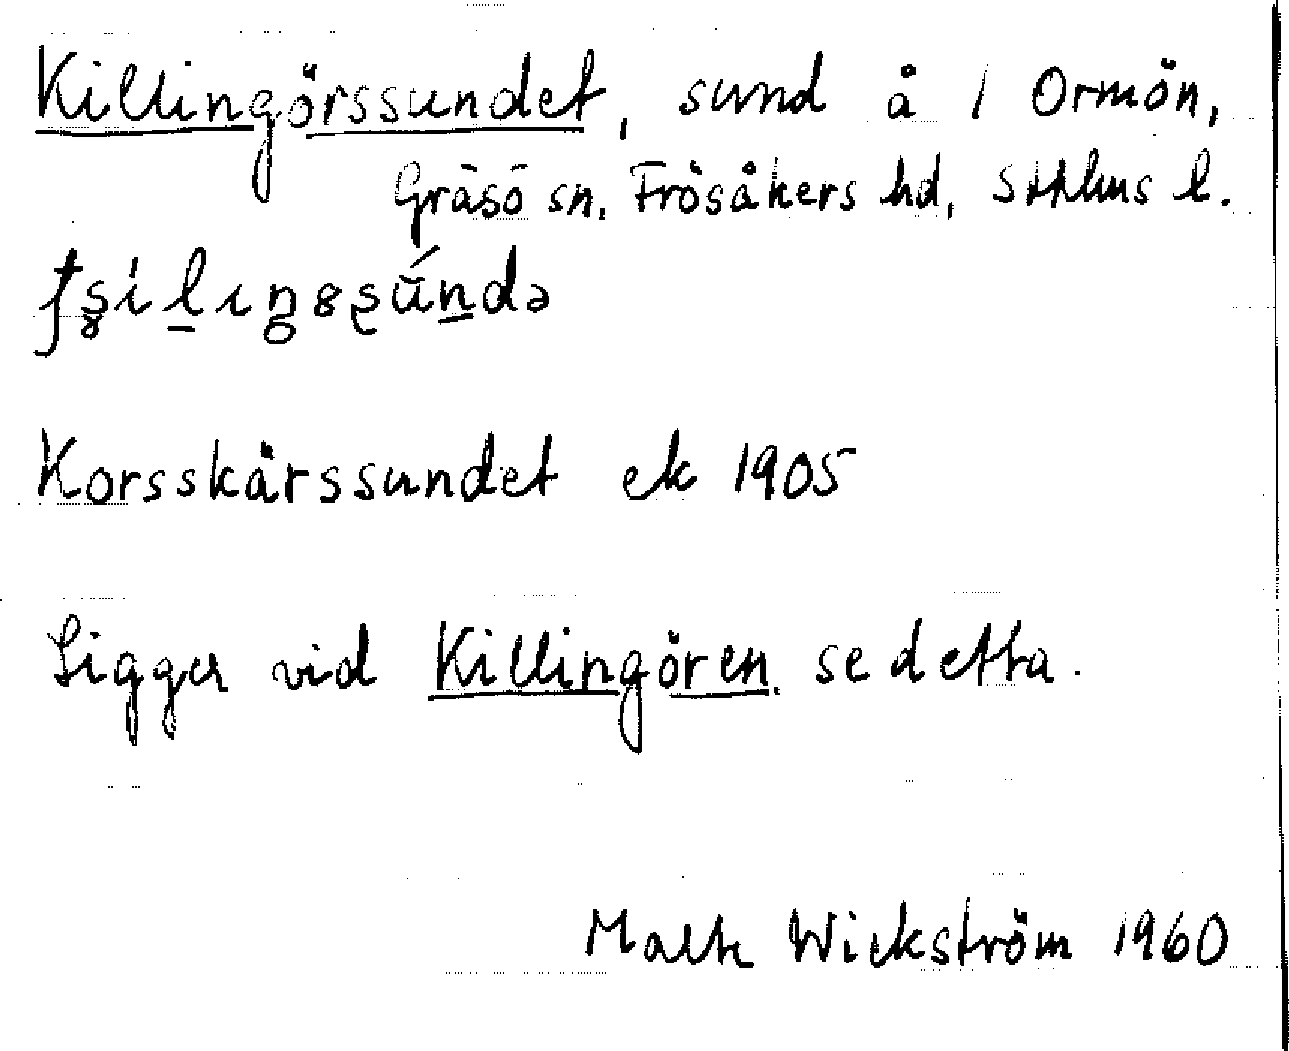 Killingörssundet, sund å 1 Ormön,
Gräsö sn, Frösåkers hd, Sthlms l.
Korsskärssundet ek 1905
Ligger vid Killingören se detta.
Malte Wickström 1960